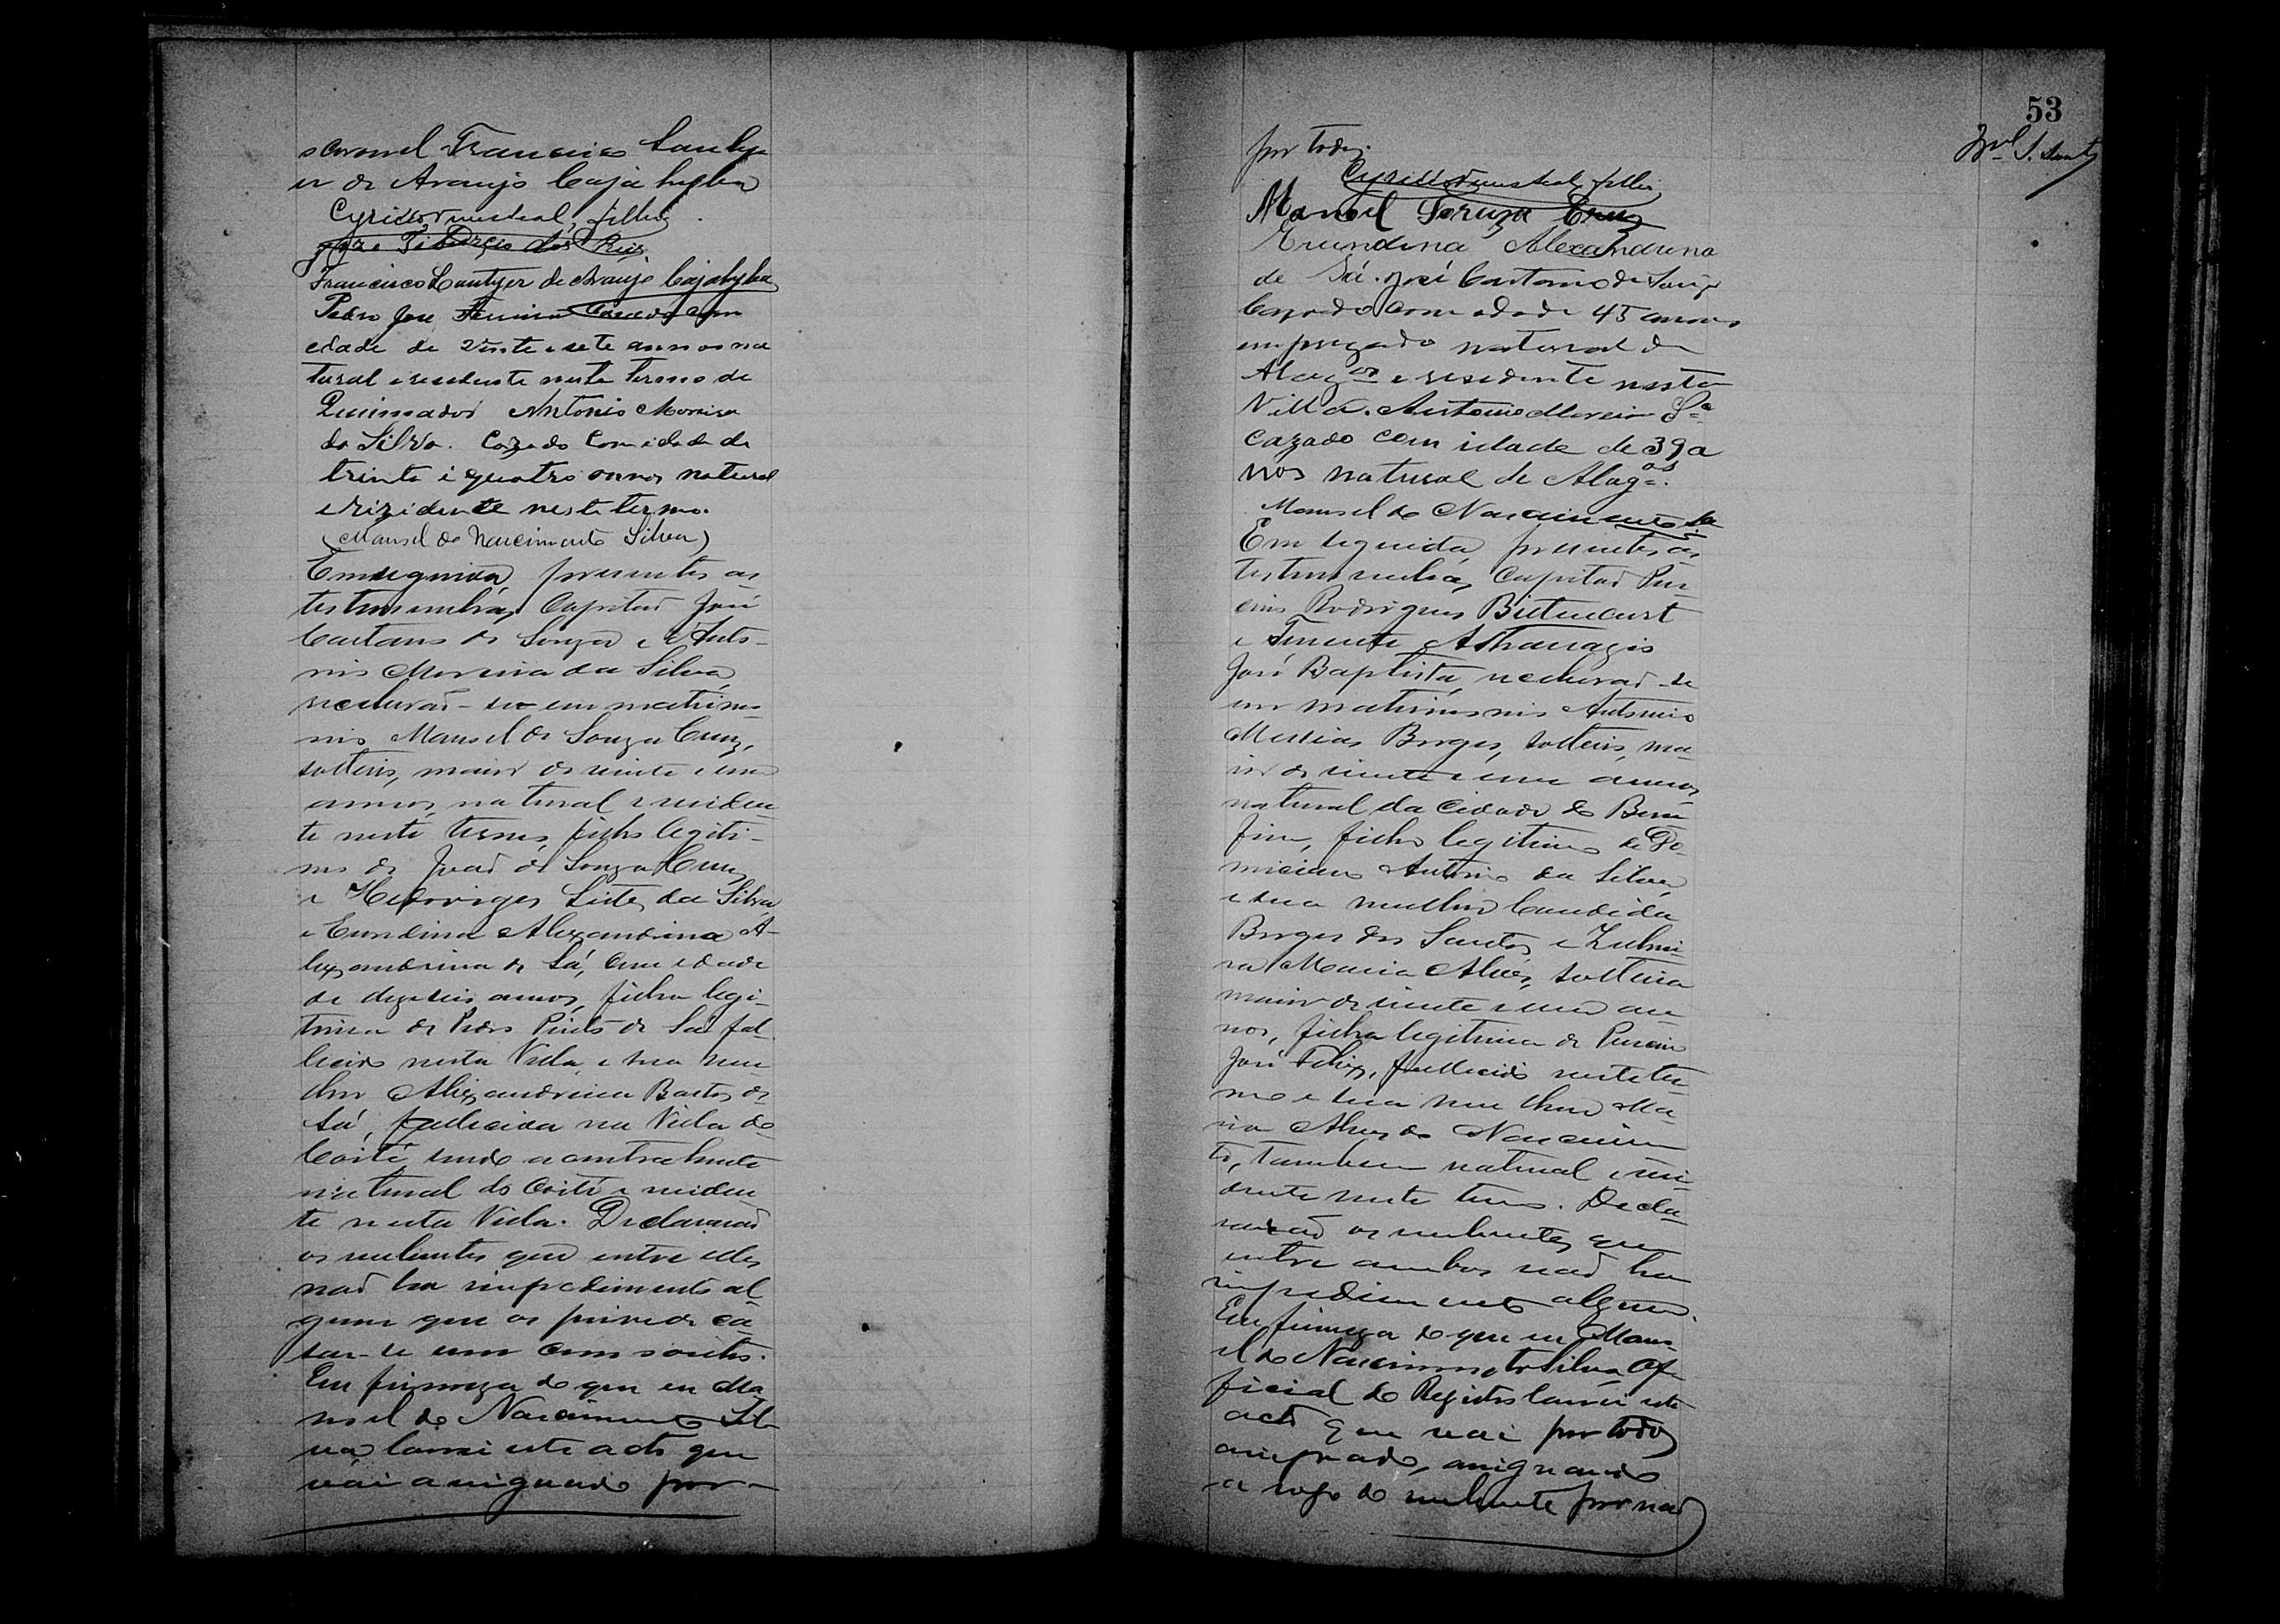 o Coronel Francisco Cantyli
er de Araujo Cajahyba
Cyrillo
Jose Tiburcio dos Reis
Francisco Cantyer de Araujo Cajahyba
Pedro Jose Ferreira Cazado com
edade de vinte e sete annos na
tural e residente neste termo de
Queimados Antonio Moreira
da Silva. Cazado Com idade de
trinta i quatro annos natural
e rizidente neste termo.
(Manoel do Nascimento Silva)
Em seguida, presentes as
testemunhas, Capitão José
Caetano de Souza e Anto-
nio Moreira da Silva,
receberão-se em matrimo-
nio Manoel de Souza Cruz,
solteiro, maior de vinte e um
annos, natural e residen-
te neste termo, filho legiti-
mo de João de Souza Cruz
e Hedoviges Leite da Silva,
e Erundina Alexandrina A-
lexandrina de Sá, com edade
de dezeseis annos, filha legi-
tima de Pedro Pinto de Sá fal-
lecido nesta Villa, e sua mu-
lher Alexandrina Bastos de
Sá, fallecida na Villa do
Coité sendo a contrahente
natural do Coité e residen-
te nesta Villa. Declararão
os nubentes que entre elles
não ha impedimento al
gum que os prive de ca-
sar-se um com o outro.
Em firmeza do que eu Ma-
noel do Nascimento Sil-
va lavrei este acto que
vai assignado por-
53
por todos.
Cyrillo
Manoel Soruza Cruz
Erundina Alexandrina
de Sá. José Caetano de Souza
Cazado Com edade 45 annos
empregado natural de
Alagoas e residente nesta
Villa. Antonio Moreira Sa
Cazado com idade de 39 a
nos natural de Alagas.
Manoel do Nascimento Sa
Em seguida, presentes as
testemunhas, Capitão Per-
cino Rodrigues Bittencurt
e Tenente Athanazio
José Baptista, receberão-se
em matrimonio Antonio
Messias Borges, solteiro, ma-
ior de vinte e um annos,
natural da Cidade do Bom-
fim, filho legitimo de Do-
miciano Antonio da Silva,
e sua mulher Candida
Borges dos Santos e Zulmi-
ra Maria Alves, solteira
maior de vinte e um an-
nos, filha legitima de
José Felix, fallecido neste ter-
mo e sua mulher Ma-
ria Alves do Nascimen-
to, tambem natural e resi-
dente neste termo. Decla-
rarão os nubentes que
entre ambos não ha
impedimento algum.
Em firmeza do que eu Mano-
el do Nascimento Silva Of-
ficial do Registro lavrei este
acto que vai por todos
assignado, assignando
a rogo do nubente por não